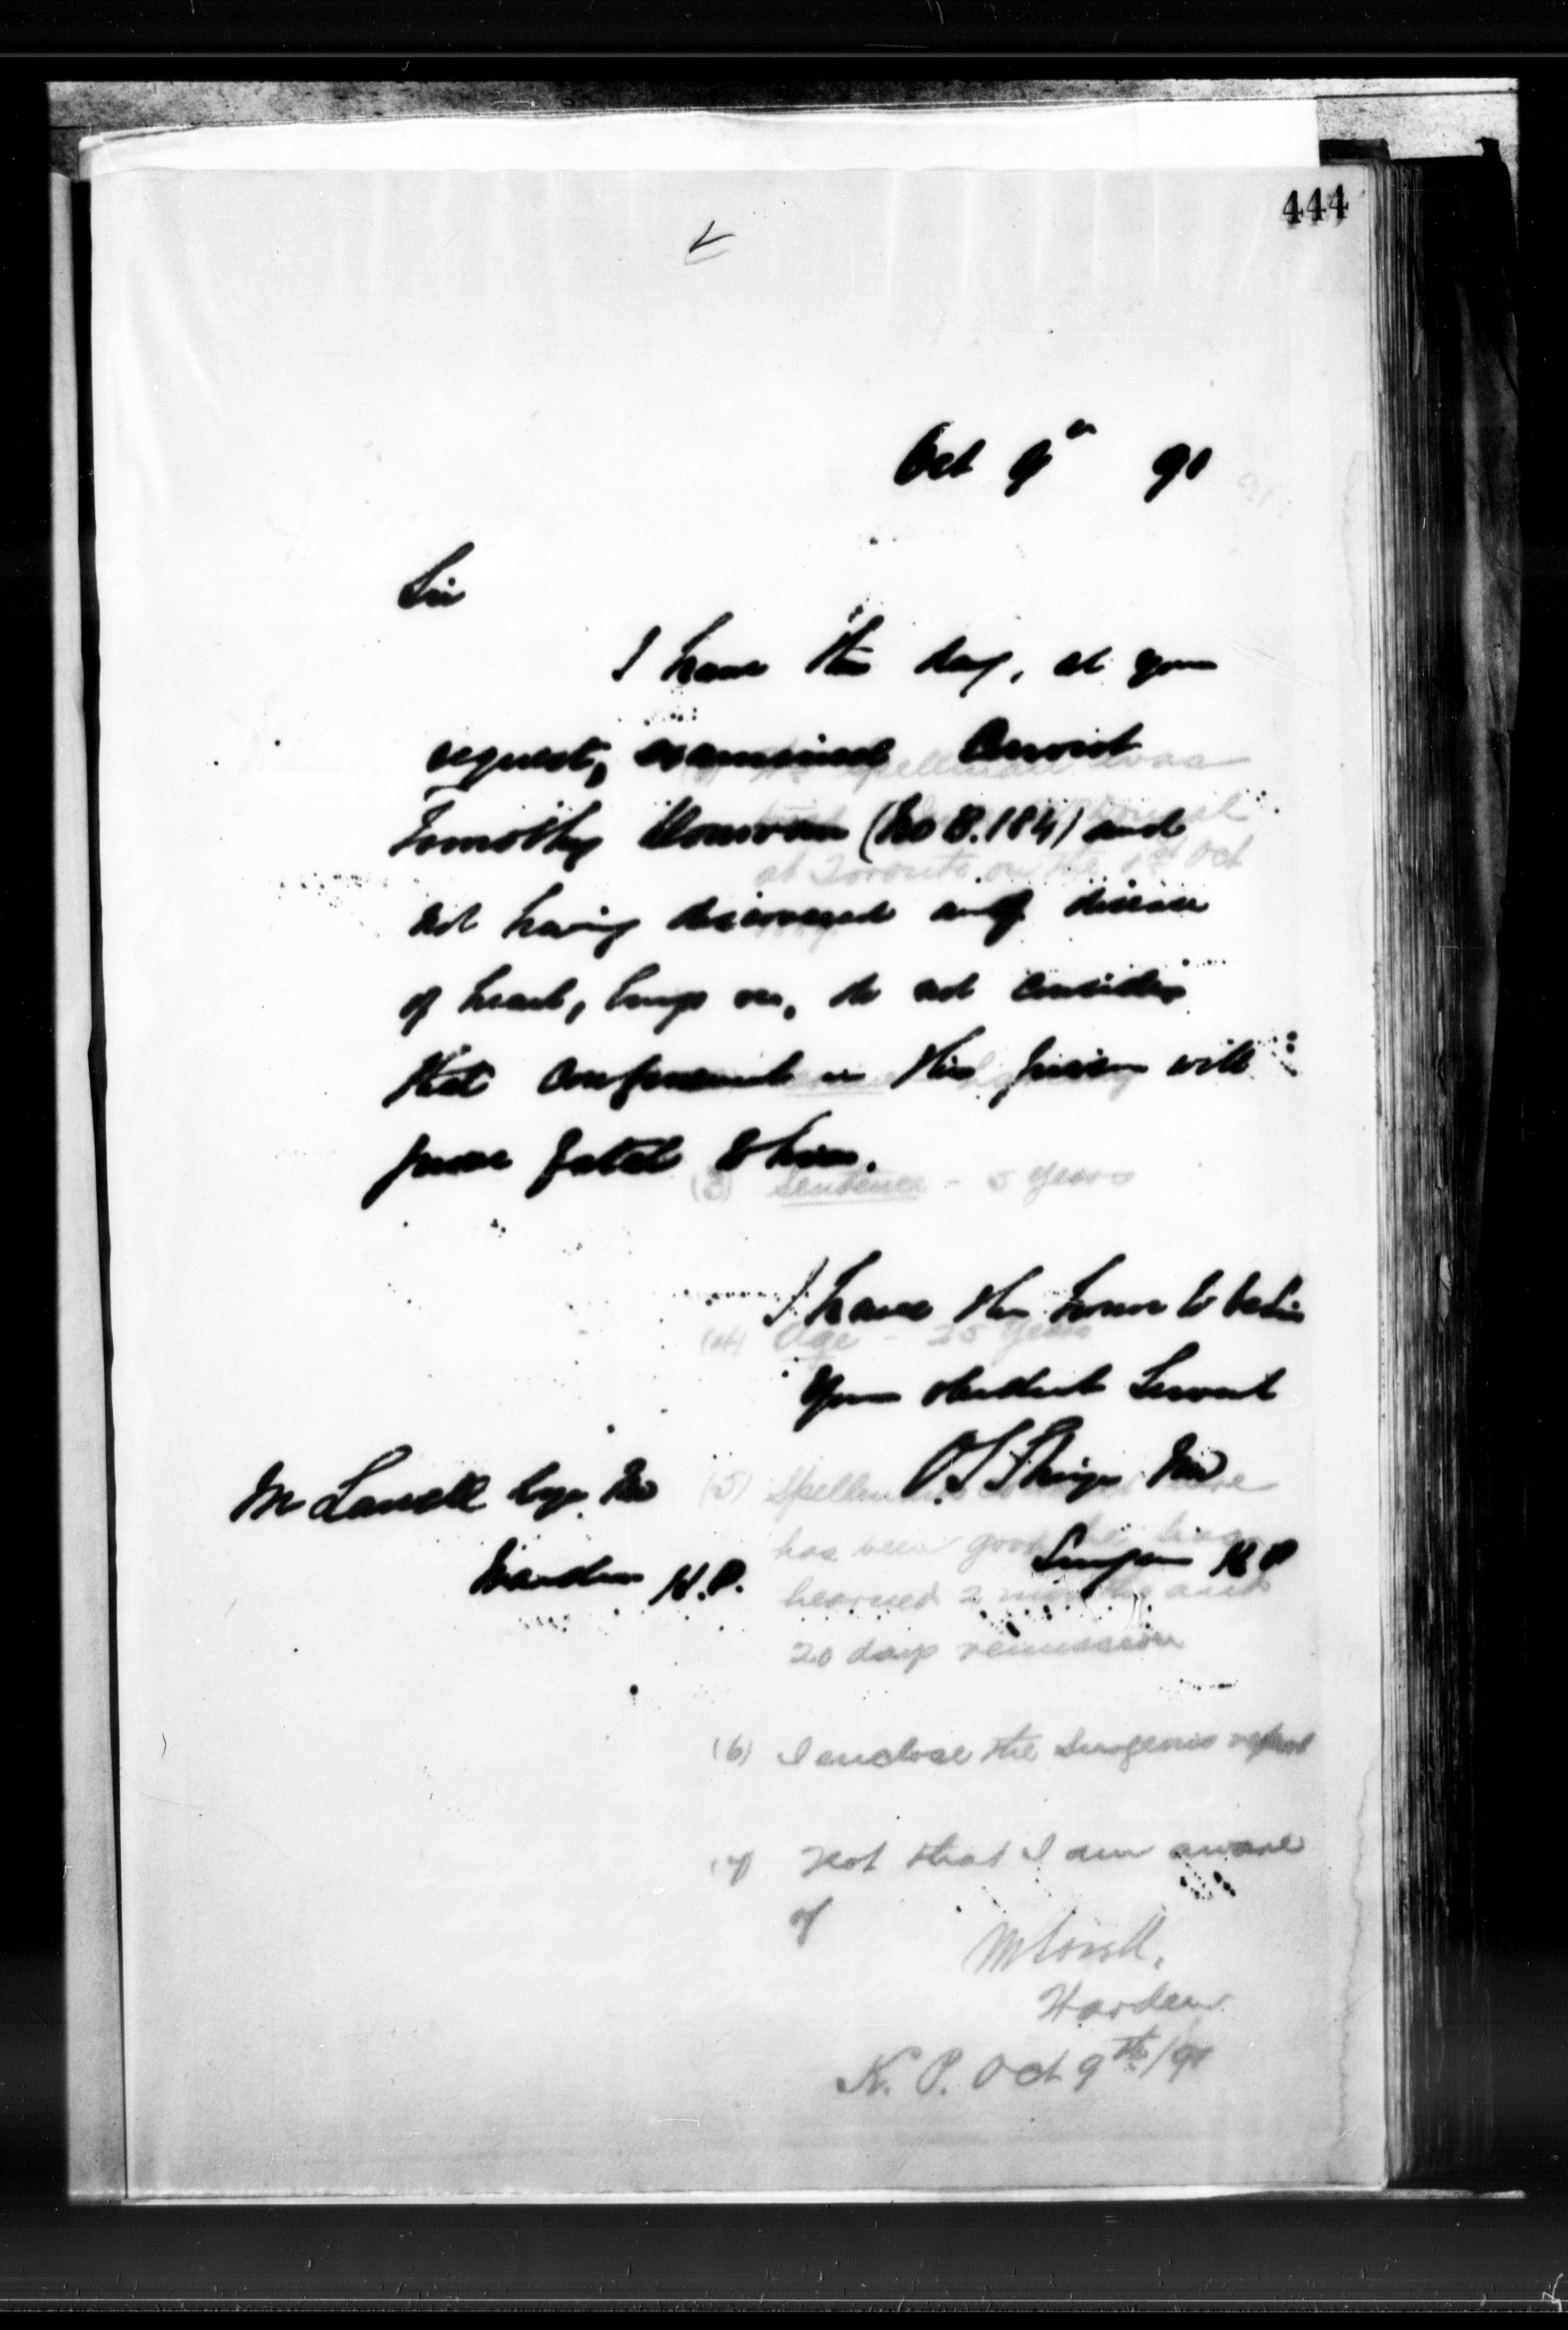 444
Oct 9th 91
Sir
I have this day, at your
request, examined Convict
Timothy Donovan (No B.184) and
not having discovered any disease
of heart, lungs &c, do not consider
that confinement in this prison will
prove fatal to him.
I have the honor to be Sir
Your obedient Servant
O.S. Strange MD
Surgeon K P
M Lavell Esqr MD
Warden K.P.
Spellman was
at Toronto on the 1st Oct
(3) Sentence - 5 years
(4) Age - 25 years
(5) Spellman's
has been good he has
learned 2 months and
20 days remission
(6) I enclose the Surgeons report
(7) Not that I am aware
of
M Lavell.
Warden
K. P. Oct 9th/91